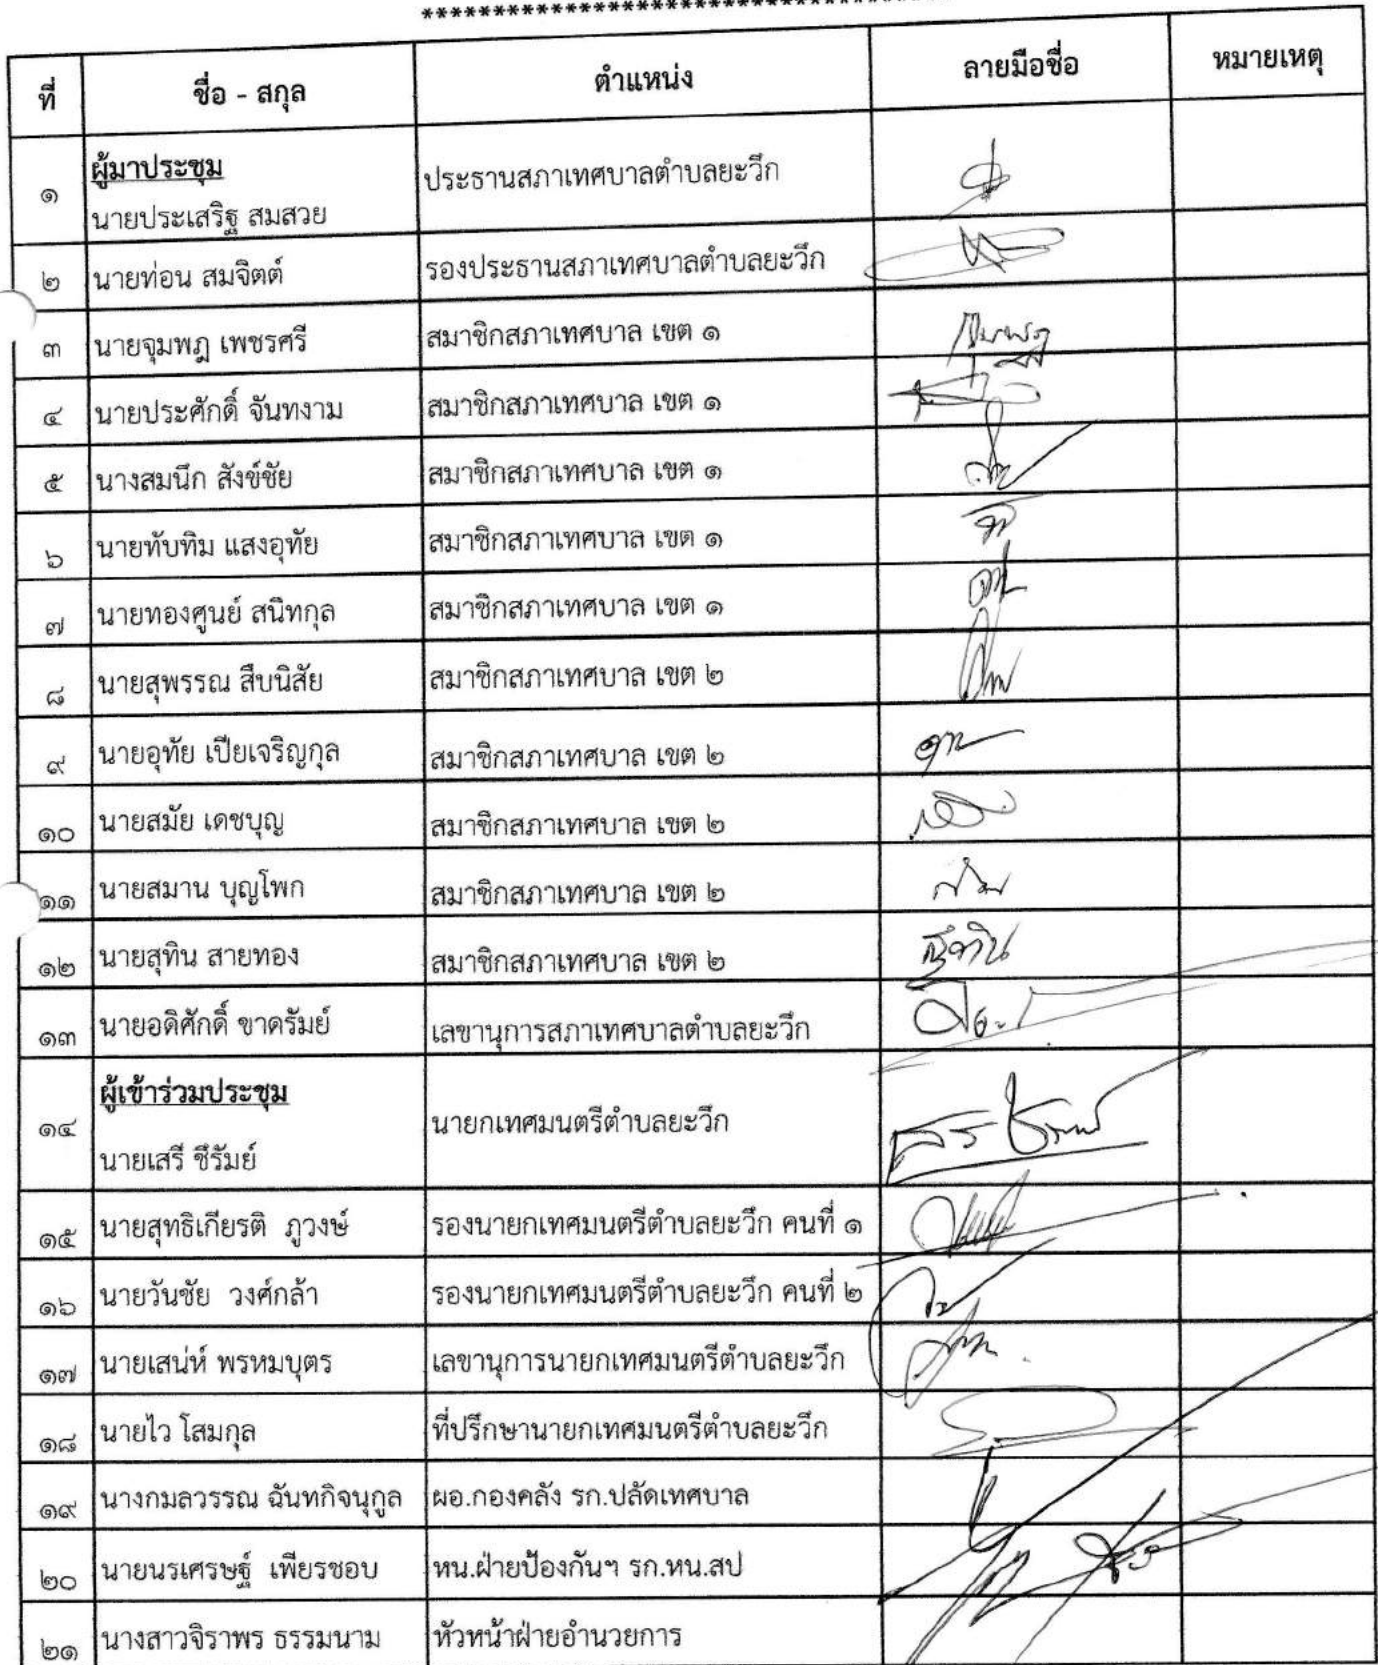 ****************************************
ที่ ชื่อ - สกุล ตำแหน่ง ลายมือชื่อ หมายเหตุ
ผู้มาประชุม
๑ นายประเสริฐ สมสวย ประธานสภาเทศบาลตำบลยะวึก
๒ นายท่อน สมจิตต์ รองประธานสภาเทศบาลตำบลยะวึก
๓ นายจุมพฎ เพชรศรี สมาชิกสภาเทศบาล เขต ๑
๔ นายประศักดิ์ จันทงาม สมาชิกสภาเทศบาล เขต ๑
๕ นางสมนึก สังข์ชัย สมาชิกสภาเทศบาล เขต ๑
๖ นายทับทิม แสงอุทัย สมาชิกสภาเทศบาล เขต ๑
๗ นายทองศูนย์ สนิทกุล สมาชิกสภาเทศบาล เขต ๑
๘ นายสุพรรณ สืบนิสัย สมาชิกสภาเทศบาล เขต ๒
๙ นายอุทัย เปียเจริญกุล สมาชิกสภาเทศบาล เขต ๒
๑๐ นายสมัย เดชบุญ สมาชิกสภาเทศบาล เขต ๒
๑๑ นายสมาน บุญโพก สมาชิกสภาเทศบาล เขต ๒
๑๒ นายสุทิน สายทอง สมาชิกสภาเทศบาล เขต ๒
๑๓ นายอดิศักดิ์ ขาดรัมย์ เลขานุการสภาเทศบาลตำบลยะวึก
ผู้เข้าร่วมประชุม
๑๔ นายเสรี ชีรัมย์ นายกเทศมนตรีตำบลยะวึก
๑๕ นายสุทธิเกียรติ ภูวงษ์ รองนายกเทศมนตรีตำบลยะวึก คนที่ ๑
๑๖ นายวันชัย วงศ์กล้า รองนายกเทศมนตรีตำบลยะวึก คนที่ ๒
๑๗ นายเสน่ห์ พรหมบุตร เลขานุการนายกเทศมนตรีตำบลยะวึก
๑๘ นายไว โสมกุล ที่ปรึกษานายกเทศมนตรีตำบลยะวึก
๑๙ นางกมลวรรณ ฉันทกิจนุกูล ผอ.กองคลัง รก.ปลัดเทศบาล
๒๐ นายนรเศรษฐ์ เพียรชอบ หน.ฝ่ายป้องกันฯ รก.หน.สป
๒๑ นางสาวจิราพร ธรรมนาม หัวหน้าฝ่ายอำนวยการ